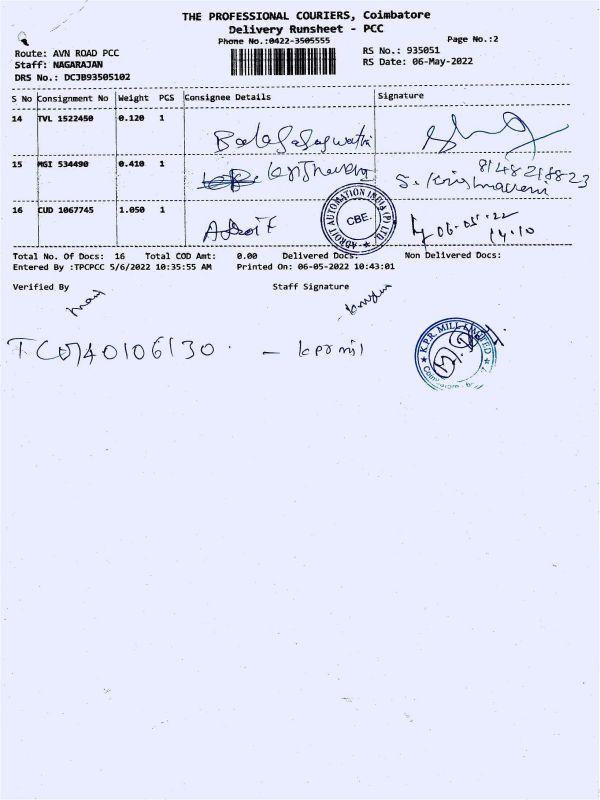 THE PROFESSIONAL COURIERS, Coimbatore
Delivery Runsheet - PCC
Phone No.:0422-3505555
Page No.:2
Route: AVN ROAD PCC
RS No.: 935051
Staff: NAGARAJAN
RS Date: 06-May-2022
DRS No.: DCJB93505102
S No Consignment No Weight PCS Consignee Details Signature
14 TVL 1522450 0.120 1
15 MGI 534490 0.410 1
8148218823
S. Krishnaveni
16 CUD 1067745 1.050 1 Adroit
06-05-22
14.10
ADROIT AUTOMATION INDIA (P) LTD.
CBE.
Total No. Of Docs: 16 Total COD Amt: 0.00 Delivered Docs: Non Delivered Docs:
Entered By :TPCPCC 5/6/2022 10:35:55 AM Printed On: 06-05-2022 10:43:01
Verified By Staff Signature
- kpr mil
K.P.R. MILL LIMITED